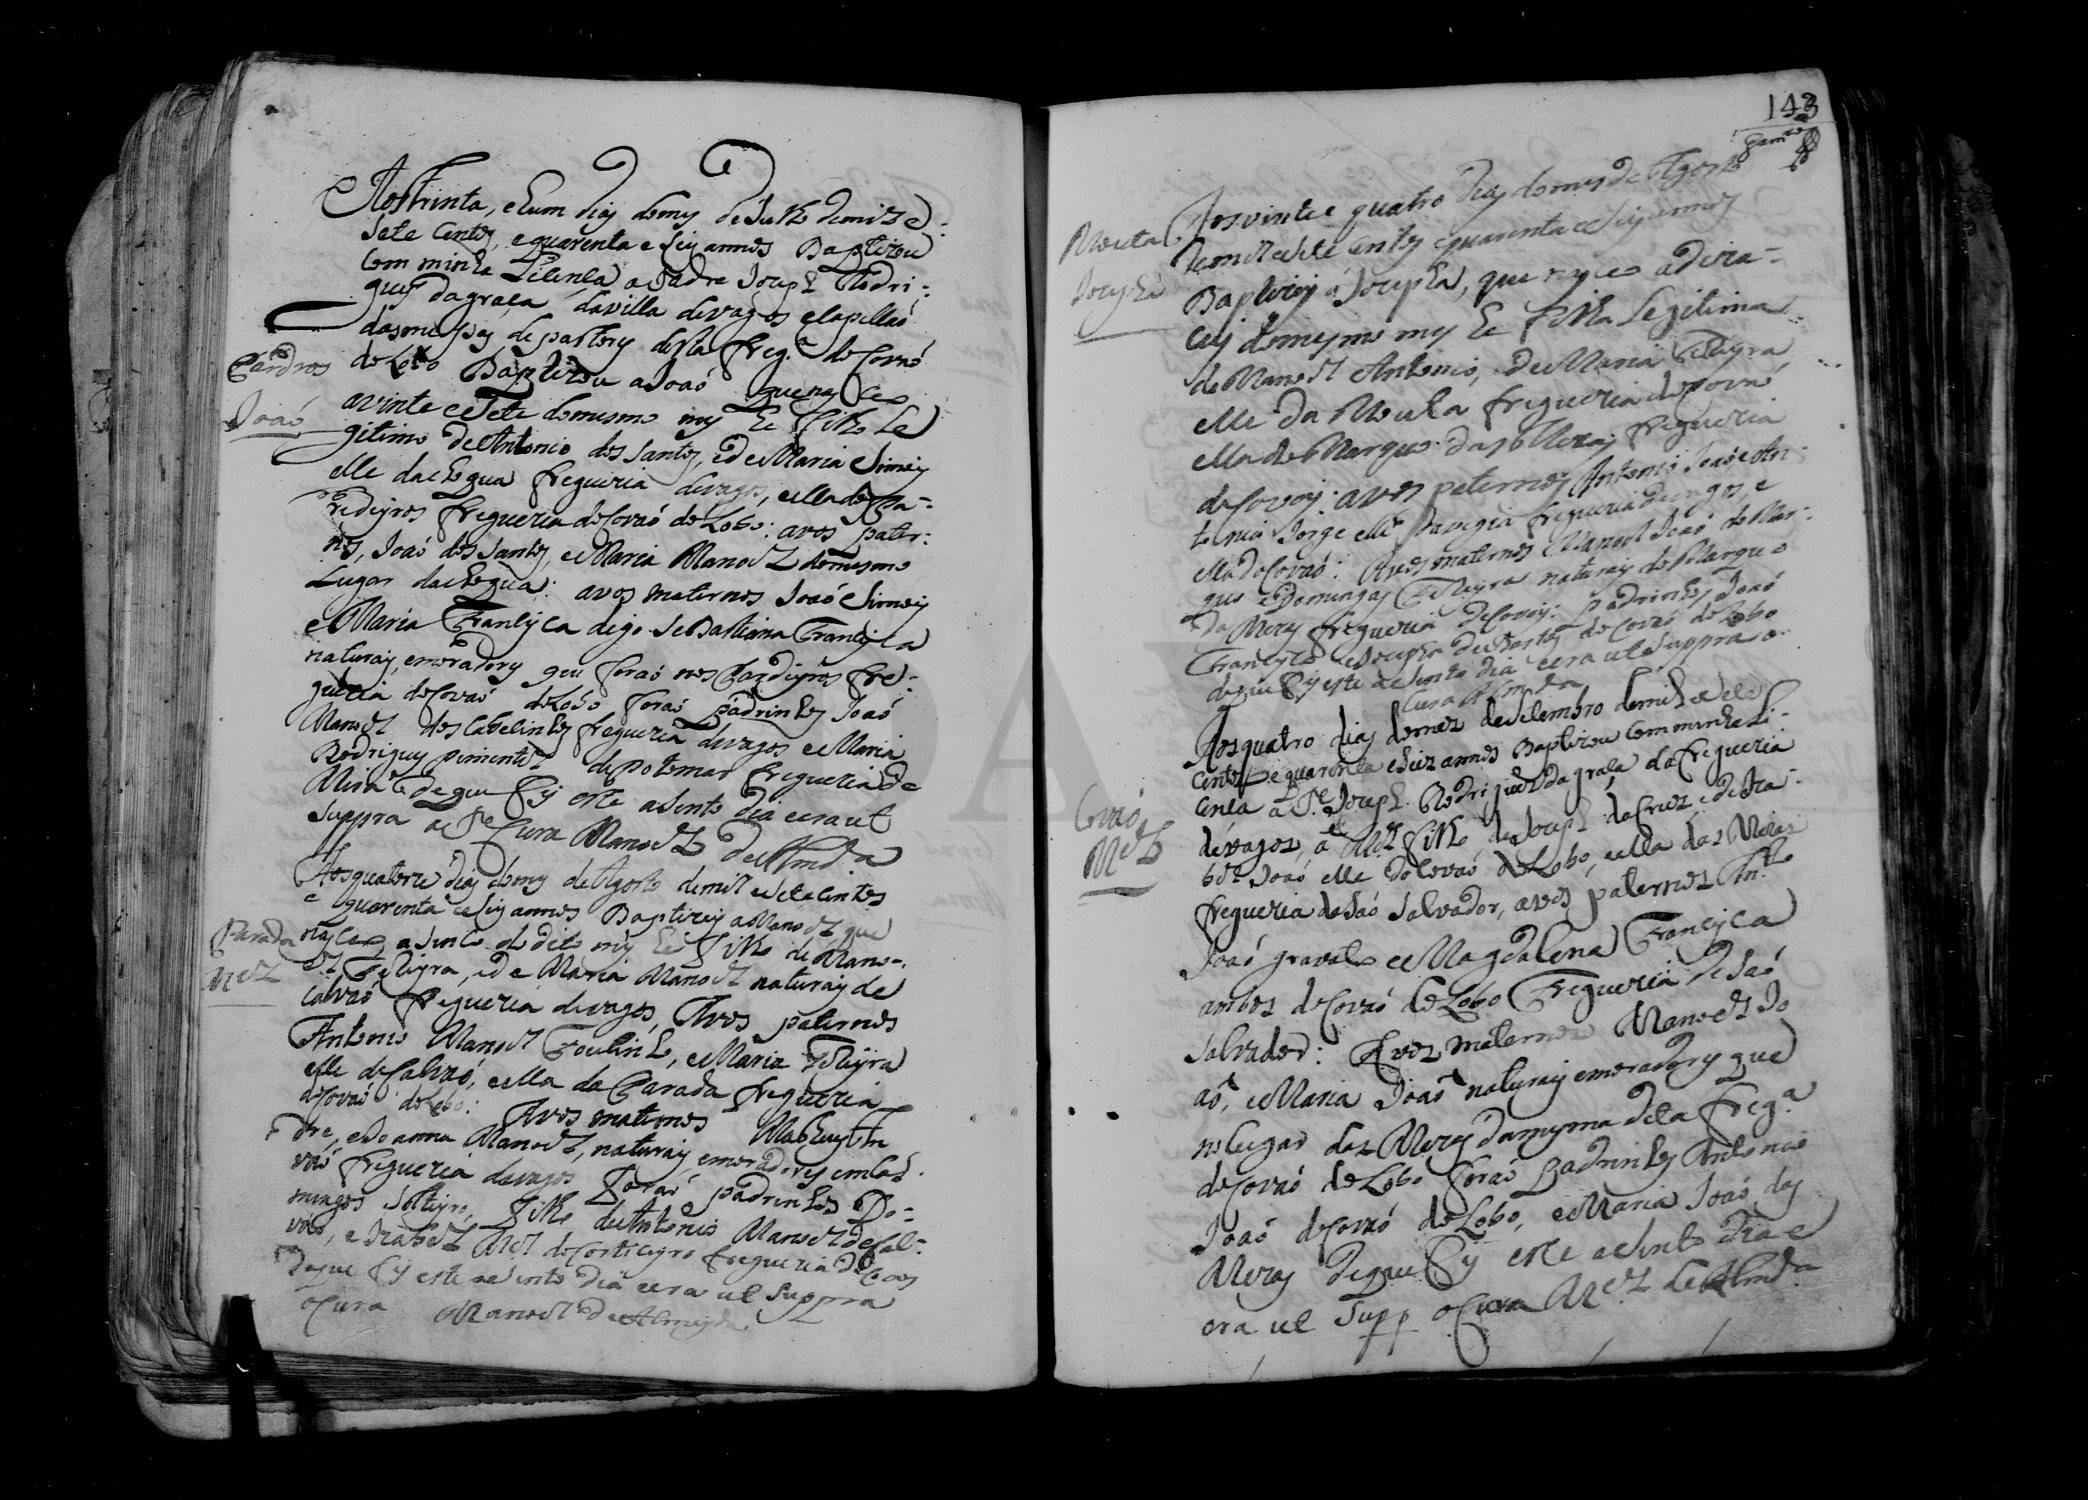 Aos trinta, e hum dias do mes de Julho de mil e
sete centos, e quarenta e seis annos Baptizou
com minha Licenca o Padre Joseph Rodri:
gues da graça da villa de vagos e capellaó
de partes desta freg.ª de Covaó
Cardros
de Lobo Baptizou a Joaó que nasceo
Joaó
a vinte e sete do mesmo mes he filho Le
gitimo de Antonio dos Santos, e de Maria Simois
elle da Legua freguezia de vagos, e ella dos Ca=
redeyros freguezia de Covaó de Lobo: avos pater:
nos, Joaó dos Santos, e Maria Manoel do mesmo
Lugar da Legua: avos maternos Joaó Simois
e Maria Francisca digo Sebastiana Francisca
naturais, e moradores que foraó nos Cardeyros fre:
guezia de Covaó de Lobo foraó padrinhos Joaó
Manoel dos Cabelinhos freguezia de vagos e Maria
Rodrigues pimentel de portomar freguezia de
Mira de que fis este asento dia e era ut
suppra o Cura Manoel de Almda
Aos quatorze dias do mes de Agosto de mil e sete centos
e quarenta e seis annos Baptizei a Manoel que
Parada
nasceo a sinco do dito mes he filho de Mano-
Mel
el Ferreyra, e de Maria Manoel naturais de
Calvaó freguezia de vagos, Avos paternos
Antonio Manoel e Maria Ferreyra
elle de Calvaó, e ella da Parada freguezia
de Covaó de Lobo: Avos maternos An
dre, e Joanna Manoel, naturais, e moradores em Cal
vaó freguezia de vagos foraó padrinhos Do=
mingos solteyro, filho de Antonio Manoel de Cal=
vaó, e Izabel Mel do Corticeyro freguezia de
de que fis este asento dia e era ut suppra
o Cura Manoel de Almeyda
143
Mouta
Aos vinte e quatro dias do mes de Agosto
de mil e sete centos e quarenta e seis annos
Josepha
Baptizei a Josepha, que nasceo a deza=
seis do mesmo mes he filha Legitima
de Manoel Antonio, e de Maria Ferreyra
elle da Mouta freguezia de Covaó
ella do Marquo das Meras freguezia
de Covois: avos peternos Antonio Joaó e An:
tonia Jorge elle freguezia de vagos, e
ella de Covaó: Avos maternos Manoel Joaó do Mar:
quo e Domingas Ferreyra naturais do Marquo
das Meras freguezia de Covois: padrinhos Joaó
Francisco e Josepha de Covaó de Lobo
de que fis este asento dia e era ut suppra o
Cura Almda
Aos quatro dias do mez de setembro de mil e sete
centos e quarenta e seiz annos Baptizou com minha Li=
cenca o Pe Joseph Rodriguez da graça da freguezia
Covaó
de vagos, a Mel filho de Joseph da Cruz e de Iza=
Mel
bel Joaó elle do Covaó de Lobo, e ella das Meras
freguezia de Saó Salvador, avos paternos Anto
Joaó gravato e Magdalena Francisca
ambos de Covaó de Lobo Freguezia de Saó
Salvador: Avos maternos Manoel Jo
aó, e Maria Joaó naturais e moradores que
no lugar das Meras da mesma dita freg.ª
de Covaó de Lobo foraó Padrinhos Antonio
Joaó de Covaó de Lobo, e Maria Joaó das
Meras de que fis este asento dia e
era ut supp o Cura Mel de Almda